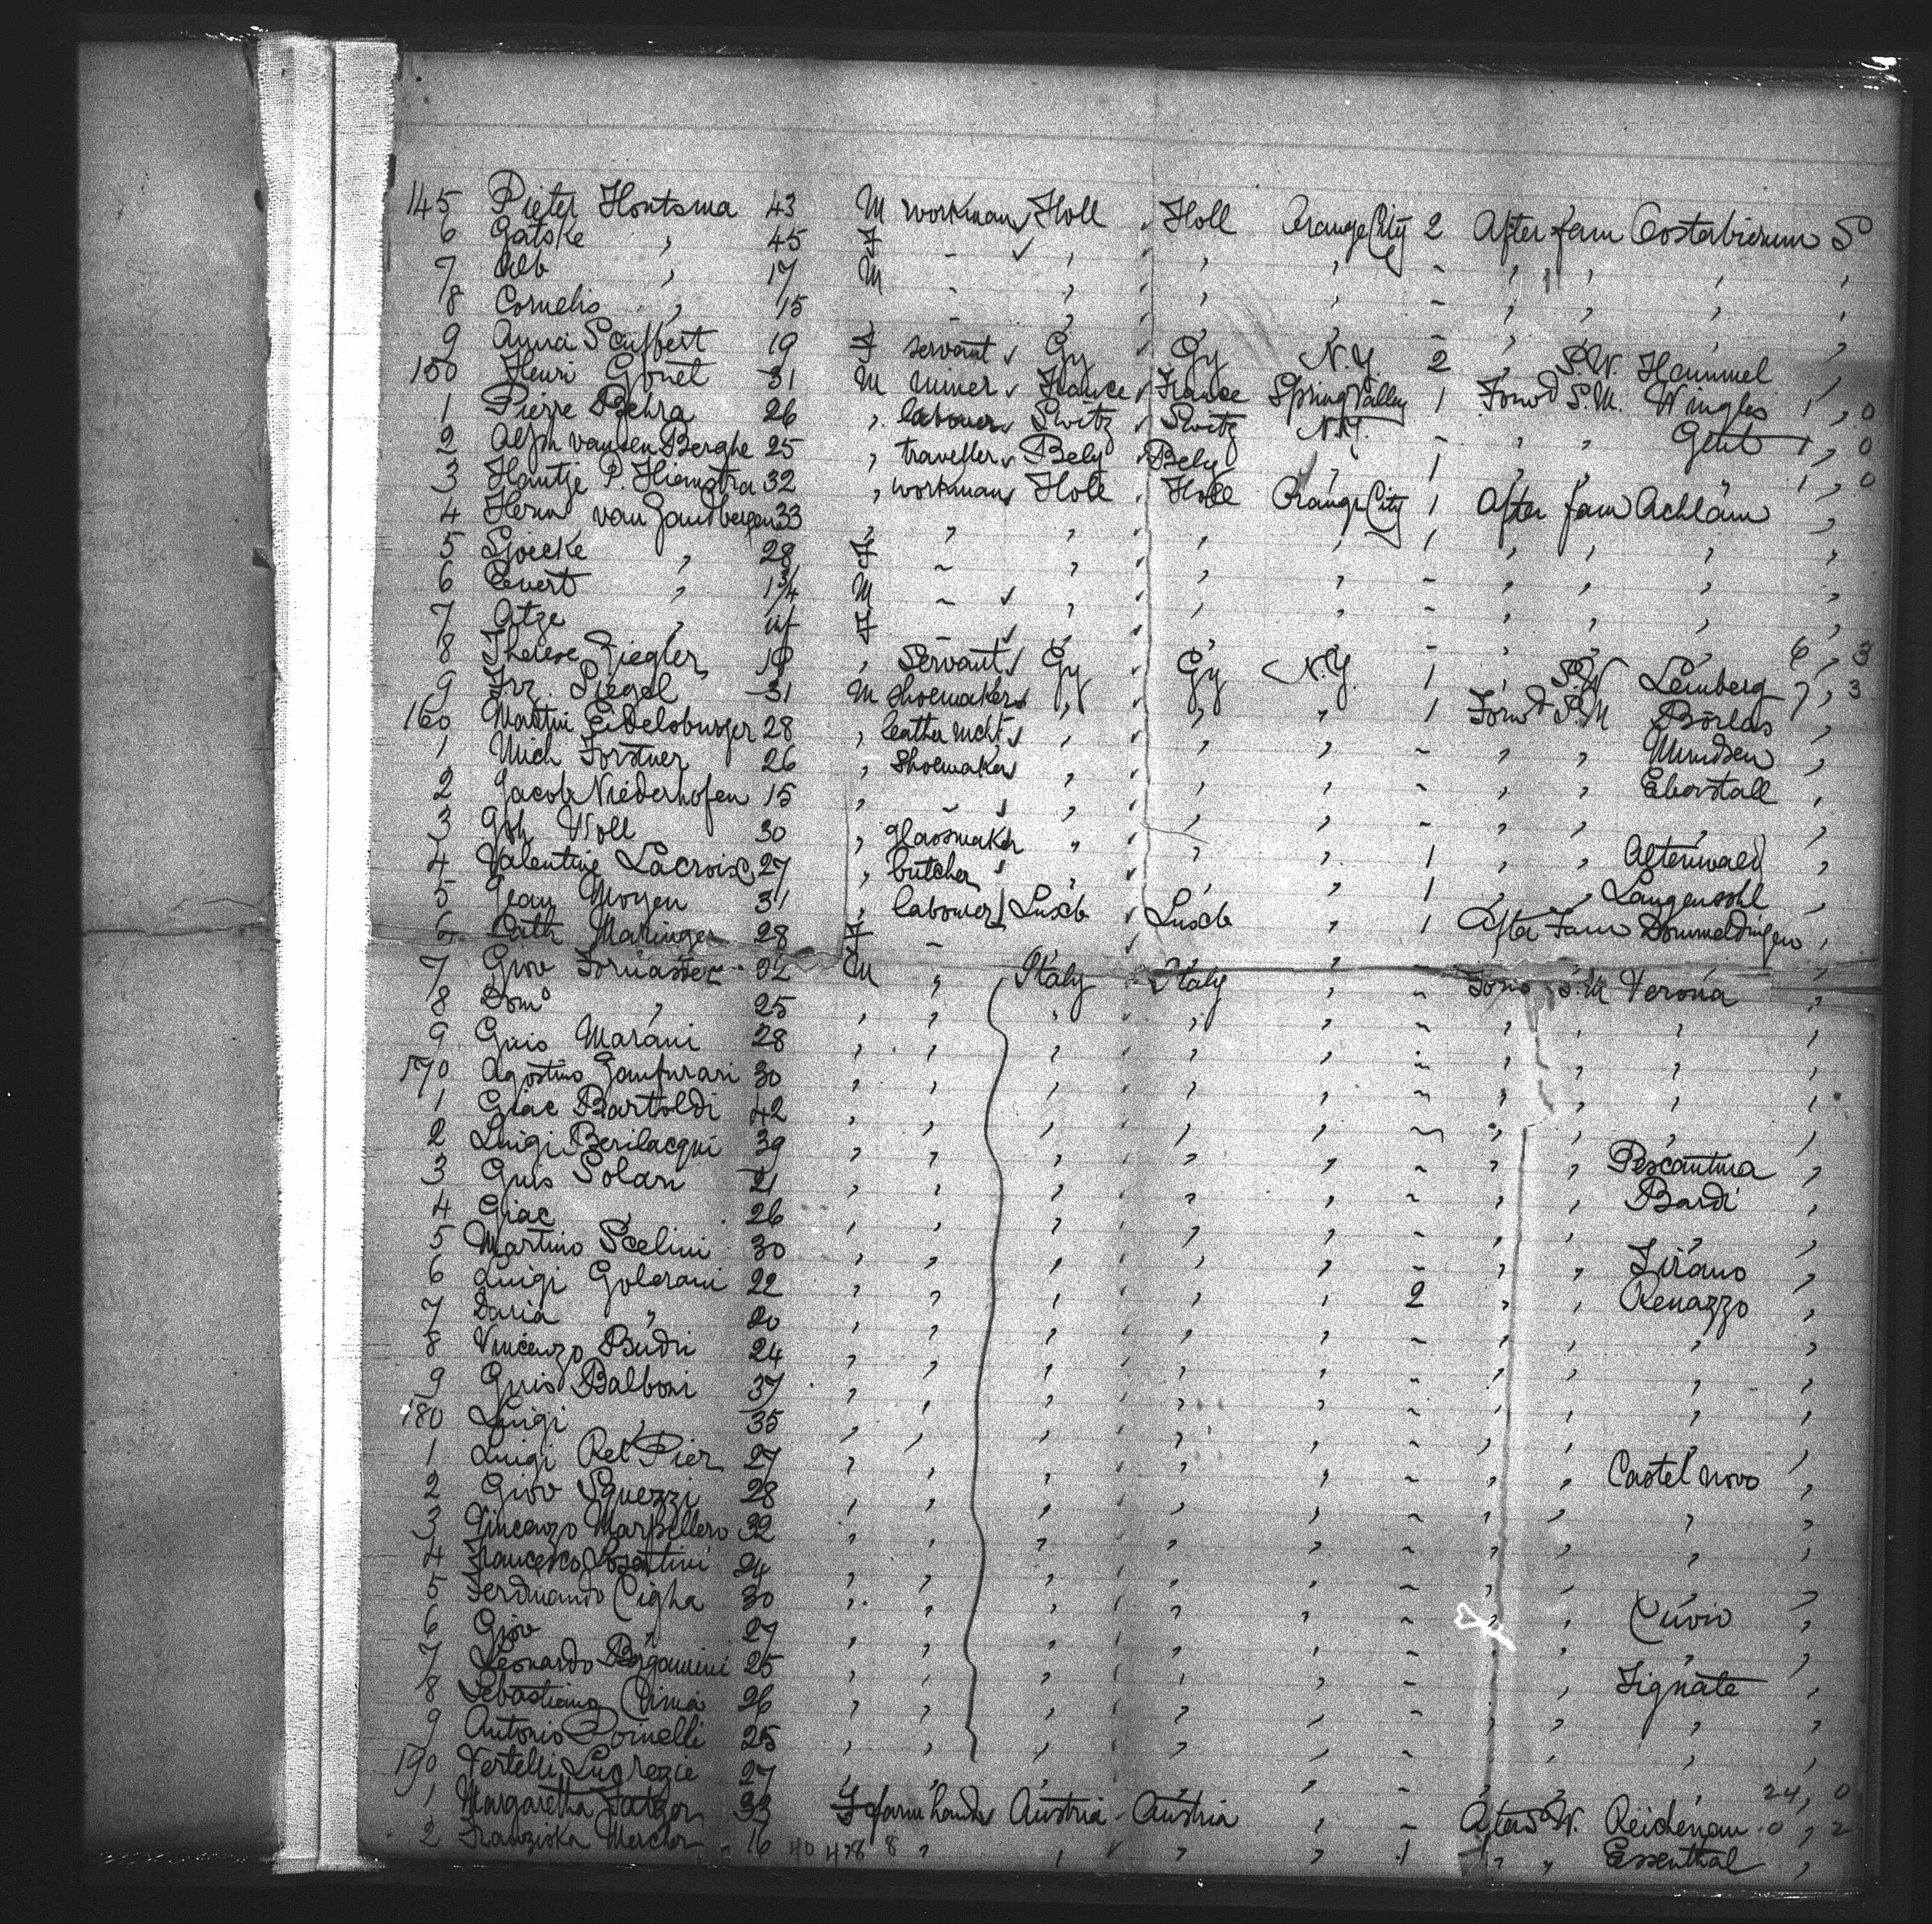 145 Pieter Hontsma 43 M workman Holl Holl Orange City 2 After fam Oosterbierum S
6 Gatske " 45 F
7 Alb " 17 M
8 Cornelis " 15
9 Anna Seuffert 19 F servant Gy Gy N.Y. 2 " S.W. Hammel
150 Henri Gonet 31 M miner France France Spring Valley 1 Forwd S.M. Wingles 1, 0
1 Pierre Behra 26 " labourer Switz Switz N.Y. - " "
2 Alph van den Berghe 25 " traveller Belg Belg " 1 " " Gent 1, 0
3 Hantje P. Hiemstra 32 " workman Holl Holl Orange City 1 After fam Achlum
4 Herm van Zandbergen 33 " " " " " 1 " " "
5 Sjoecke " 28 F
6 Evert " 1 3/4 M
7 Atze " inf F 6, 3
8 Therese Ziegler 19 " Servant Gy Gy N.Y. 1 " S.W. Lemberg 7, 3
9 Frz. Siegel 31 M Shoemaker " " " 1 Forwd S.M Börlas
160 Martin Eidelsburger 28 " leather mcht " " " - " " Mundsen
1 Mich Forstner 26 " Shoemaker " " " - " " Eberstall
2 Jacob Niederhofen 15 " - " " " - " " "
3 Joh Woll 30 " glassmaker " " " 1 " " Altenwald
4 Valentine Lacroix 27 " butcher " " " 1 " " Langensohl
5 Jean Moyen 31 " labourer Luxb Luxb " 1 After Fam Dommeldingen
6 Cath Maringer 28 F -
7 Giov Fornasier 32 M " Italy Italy " - Forw S.M Verona
8 Domo " 25
9 Guis Marani 28
170 Agostino Ganfurari 30
1 Giac Bartoldi 42
2 Luigi Berilacqui 39 " " " " " - " " Pescantina
3 Guis Solari 21 " " " " " - " " Bardi
4 Giac " 26
5 Martino Scelini 30 " " " " " - " " Tirano
6 Luigi Golerani 22 " " " " " 2 " " Renazzo
7 Daria " 20
8 Vincenzo Budri 24
9 Guis Balboni 37
180 Luigi " 35
1 Luigi Ret Pier 27 " " " " " - " " Castel novo
2 Giov Squezzi 28
3 Vincenzo Marsillero 32
4 Francesco 24
5 Ferdinando Cigha 30 " " " " " - " " Cuvio
6 Giov " 27
7 Leonardo Bergamini 25 " " " " " - " " Tignate
8 Sebastiano Cima 26
9 Antonio Dornelli 25
190 Vertelli Lucrezie 27 24, 0
1 Margaretha 33 F farm hands Austria Austria " - After S.W. Reichenau 0, 2
2 Franziska Mercher 16 40 478 8 " " " " 1 " " Essenthal